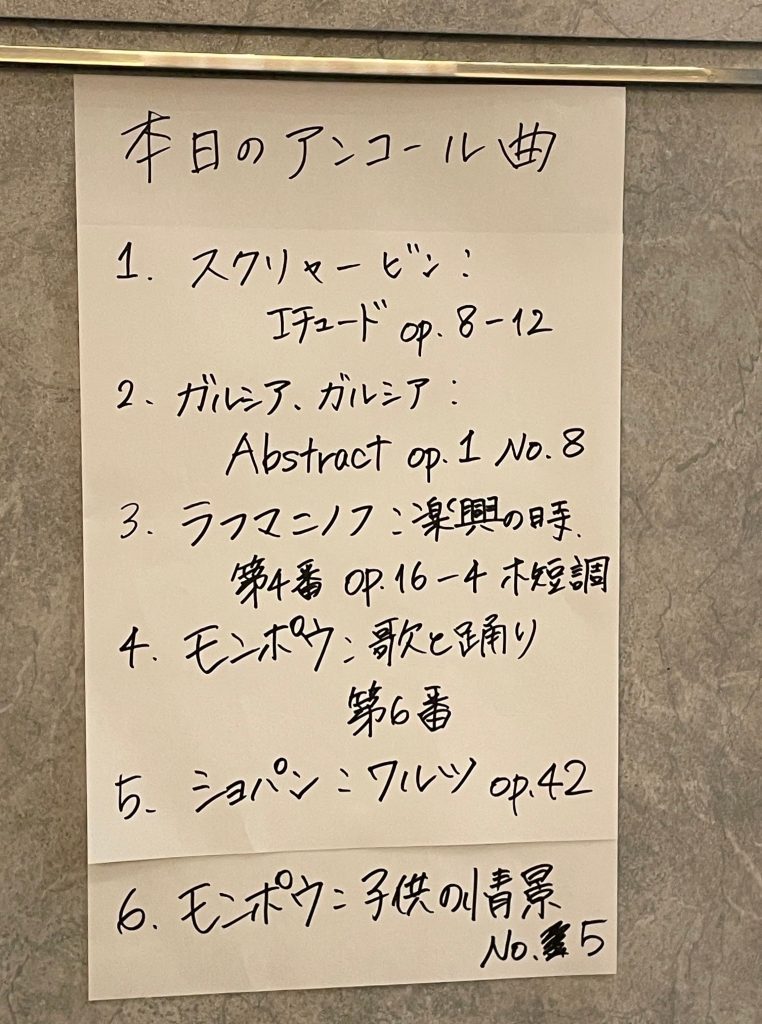 本日のアンコール曲
1. スクリャービン:
エチュード op. 8-12
2. ガルシア、ガルシア:
Abstract op.1 No.8
3. ラフマニノフ:楽興の時.
第4番 op.16-4 ホ短調
4. モンポウ:歌と踊り
第6番
5. ショパン:ワルツ op.42
6. モンポウ:子供の情景
No. 5